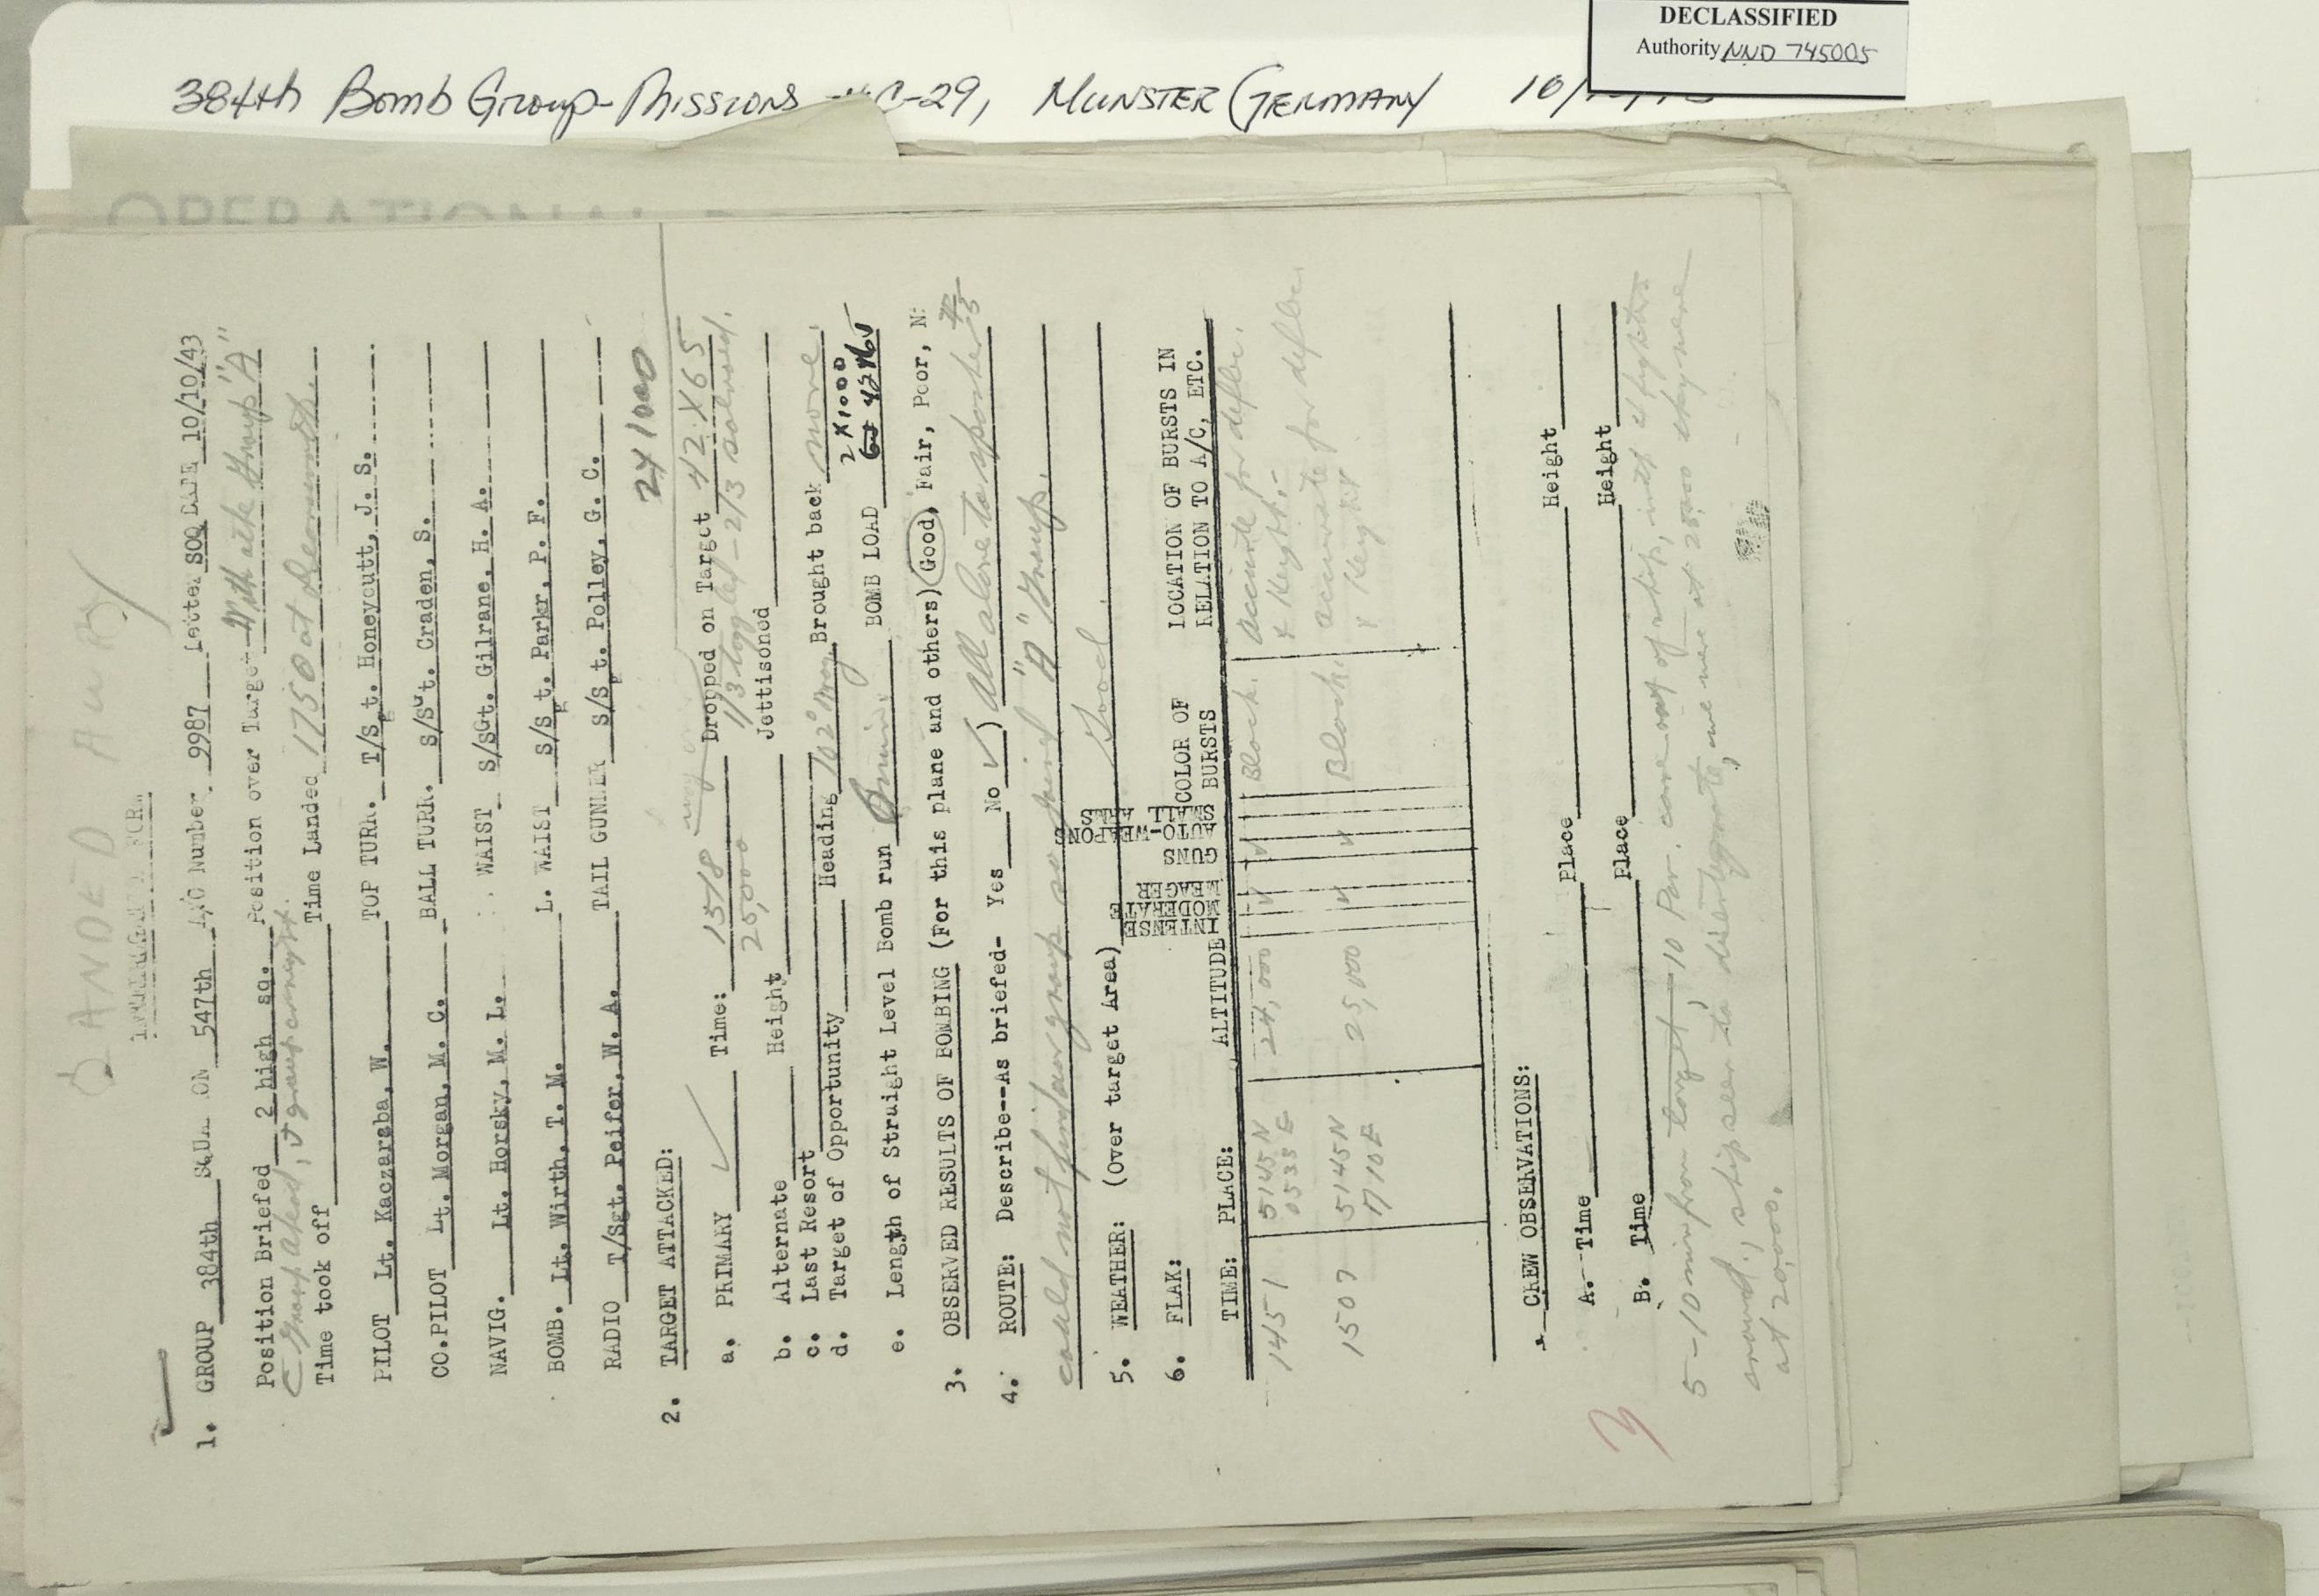 DECLASSIFIED
Authority NND 745005
384th Bomb Group-Missions C-29, MUNSTER (GERMANY 10/
OPERATIONAL
LANDED AWAY
INTERROGATION FORM
1. GROUP 384th SQUADRON 547th A/C Number 9987 Letter SOQ DATE 10/10/43
Position Briefed 2 high sq. Position over Target With the Group "A"
C Group ahead,
Time took off Time Landed 1750 at
PILOT Lt. Kaczaraba, W. TOP TURR. T/Sgt. Honeycutt, J. S.
CO.PILOT Lt. Morgan, M. C. BALL TURR. S/Sgt. Craden, S.
NAVIG. Lt. Horsky, M. L. WAIST S/Sgt. Gilrane, H. A.
BOMB. Lt. Wirth, T. M. L. WAIST S/Sgt. Parkr, P. F.
RADIO T/Sgt. Peifer, W. A. TAIL GUNNER S/Sgt. Polley, G. C.
2X1000
2. TARGET ATTACKED:
a. PRIMARY ✓ Time: 1518 Dropped on Target 42 X 65
25,000 1/3 - 2/3 salvoed.
b. Alternate Height Jettisoned
c. Last Resort
d. Target of Opportunity Heading 102° Mag. Brought back none.
2X1000
e. Length of Straight Level Bomb run min. BOMB LOAD 42
3. OBSERVED RESULTS OF BOMBING (For this plane and others) Good, Fair, Poor, N:
4. ROUTE: Describe--As briefed- Yes No ✓) All alone to
could not find our group so joined "A" Group.
5. WEATHER: (Over target Area) Good
6. FLAK:
TIME: PLACE: ALTITUDE INTENSE MODERATE MEAGER GUNS AUTO-WEAPONS SMALL ARMS COLOR OF BURSTS LOCATION OF BURSTS IN RELATION TO A/C, ETC.
1451 5145N 24,000 Black. accurate for deflec.
0535 E + height.
1507 5145N 25,000 Black accurate for deflec
0710E + height
CREW OBSERVATIONS:
A. Time Place Height
B. Time Place Height
5-10 min from target, 10 Par. came out of ship, with 4 fighters
around, ship seen to disintegrate, we were at 25,000 they were
at 20,000.